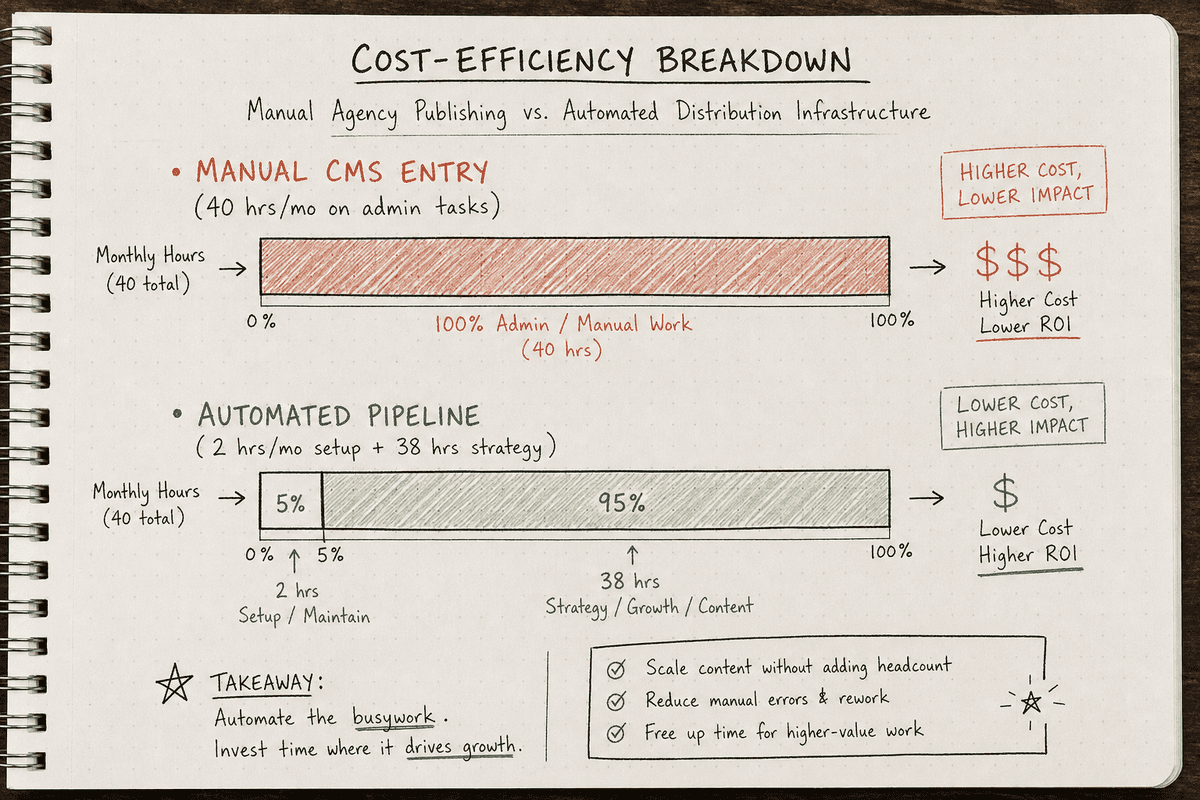 COST-EFFICIENCY BREAKDOWN
Manual Agency Publishing vs. Automated Distribution Infrastructure
• MANUAL CMS ENTRY
(40 hrs/mo on admin tasks)
HIGHER COST,
LOWER IMPACT
Monthly Hours
(40 total)
$$$
Higher Cost
Lower ROI
0%
100% Admin / Manual Work
(40 hrs)
100%
• AUTOMATED PIPELINE
(2 hrs/mo setup + 38 hrs strategy)
LOWER COST,
HIGHER IMPACT
Monthly Hours
(40 total)
5%
95%
$
Lower Cost
Higher ROI
0%
5%
100%
2 hrs
Setup / Maintain
38 hrs
Strategy / Growth / Content
TAKEAWAY:
Automate the busywork.
Invest time where it drives growth.
Scale content without adding headcount
Reduce manual errors & rework
Free up time for higher-value work